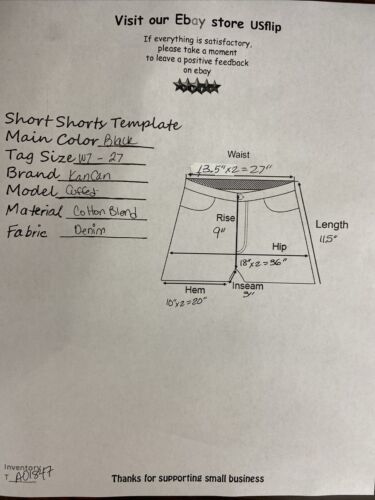 Visit our Ebay store USflip
If everything is satisfactory,
please take a moment
to leave a positive feedback
on ebay
Short Shorts Template
Main Color Black
Tag Size W7 - 27
Brand KanCan
Model Cuffed
Material Cotton Blend
Fabric Denim
Waist
13.5"x2=27"
Rise
9"
Length
11.5"
Hip
18"x2=36"
Hem
10"x2=20"
Inseam
3"
Inventory
T A01847
Thanks for supporting small business